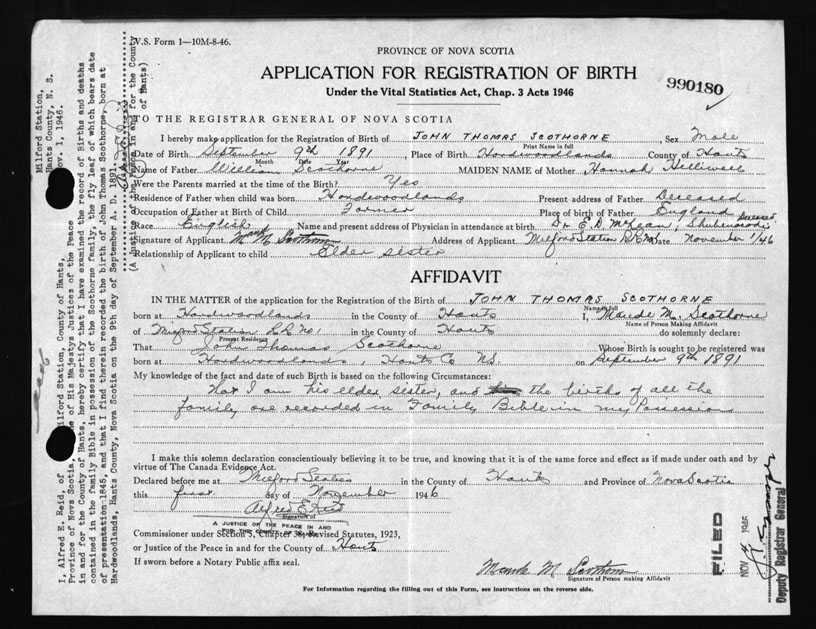 V.S. Form 1—10M-8-46.
PROVINCE OF NOVA SCOTIA
APPLICATION FOR REGISTRATION OF BIRTH
Under the Vital Statistics Act, Chap. 3 Acts 1946
990180
TO THE REGISTRAR GENERAL OF NOVA SCOTIA
I hereby make application for the Registration of Birth of JOHN THOMAS SCOTHORNE, Sex Male
Print Name in full
Date of Birth September 9th 1891, Place of Birth Hardwoodlands County of Hants
Month Date Year
Name of Father William Scothorne MAIDEN NAME of Mother Hannah Helliwell
Were the Parents married at the time of the Birth? Yes
Residence of Father when child was born Hardwoodlands Present address of Father Deceased
Occupation of Father at Birth of Child Farmer Place of birth of Father England
Race English Name and present address of Physician in attendance at birth Dr E. D. McLean, Shubenacadie Deceased
Signature of Applicant Maude M. Scothorne Address of Applicant Milford Station R.R. No 1 Date November 1/46
Relationship of Applicant to child Elder sister
AFFIDAVIT
IN THE MATTER of the application for the Registration of the Birth of JOHN THOMAS SCOTHORNE
Name in full
born at Hardwoodlands in the County of Hants I, Maude M. Scothorne
Name of Person Making Affidavit
of Milford Station R.R. No 1 in the County of Hants do solemnly declare:
Present Residence
That John Thomas Scothorne Whose Birth is sought to be registered was
born at Hardwoodlands, Hants Co NS. on September 9th 1891
My knowledge of the fact and date of such Birth is based on the following Circumstances:
That I am his elder sister, and the births of all the
family are recorded in Family Bible in my Possession
I make this solemn declaration conscientiously believing it to be true, and knowing that it is of the same force and effect as if made under oath and by
virtue of The Canada Evidence Act.
Declared before me at Milford Station in the County of Hants and Province of Nova Scotia
this first day of November 1946
Alfred E Reid
Signature of
A JUSTICE OF THE PEACE IN AND
FOR THE COUNTY OF HANTS
Commissioner under Section 5, Chapter 38, Revised Statutes, 1923,
or Justice of the Peace in and for the County of Hants
If sworn before a Notary Public affix seal.
Maude M Scothorne
Signature of Person making Affidavit
For Information regarding the filling out of this Form, see instructions on the reverse side.
FILED
NOV 4 1946
Deputy Registrar General
Milford Station,
Hants County, N. S.
Nov. 1, 1946.
I, Alfred E. Reid, of Milford Station, County of Hants,
Province of Nova Scotia, one of His Majestys Justices of the Peace
in and for the County of Hants, hereby certify that I have examined the record of Births and deaths
contained in the family Bible in possession of the Scothorne family, the fly leaf of which bears date
of presentation 1845, and that I find therein recorded the birth of John Thomas Scothorne, born at
Hardwoodlands, Hants County, Nova Scotia on the 9th day of September A. D. 1891.
(A Justice of the Peace in and for the County
of Hants)